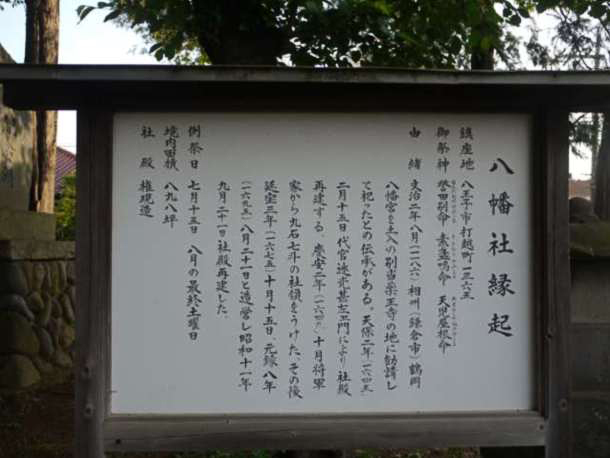 八幡社縁起
鎮座地 八王子市打越町一三六王
御祭神 誉田別命 素盞嗚命 天児屋根命
由緒 文治二年八月(一一八六)相州(鎌倉市)鶴岡
八幡宮を土入の別当栄王寺の地に勧請し
て祀ったとの伝承がある。天保二年(一六四五)
二月十五日代官 により社殿
再建する。慶安二年(一六四九)十月将軍
家から九石七斗の社領をうけた、その後
延宝三年(一六七五)十月十五日、元禄八年
(一六九五)八月二十一日と造営し昭和十一年
九月二十一日社殿再建した。
例祭日 七月十五日 八月の最終土曜日
境内面積 八九八坪
社殿 権現造